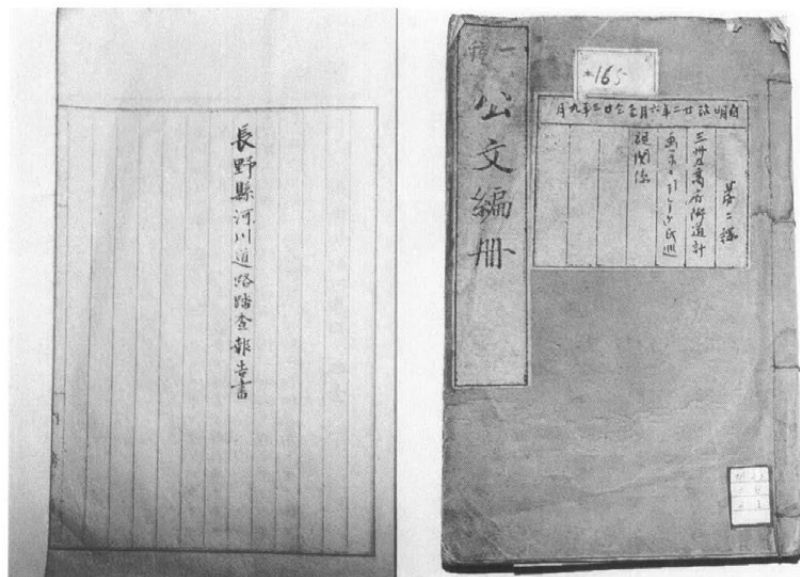 長野縣河川道路踏査報告書
一種
公文編冊
165
自明治廿二年六月至仝廿三年九月
第二課
三州及高府街道計
視関係